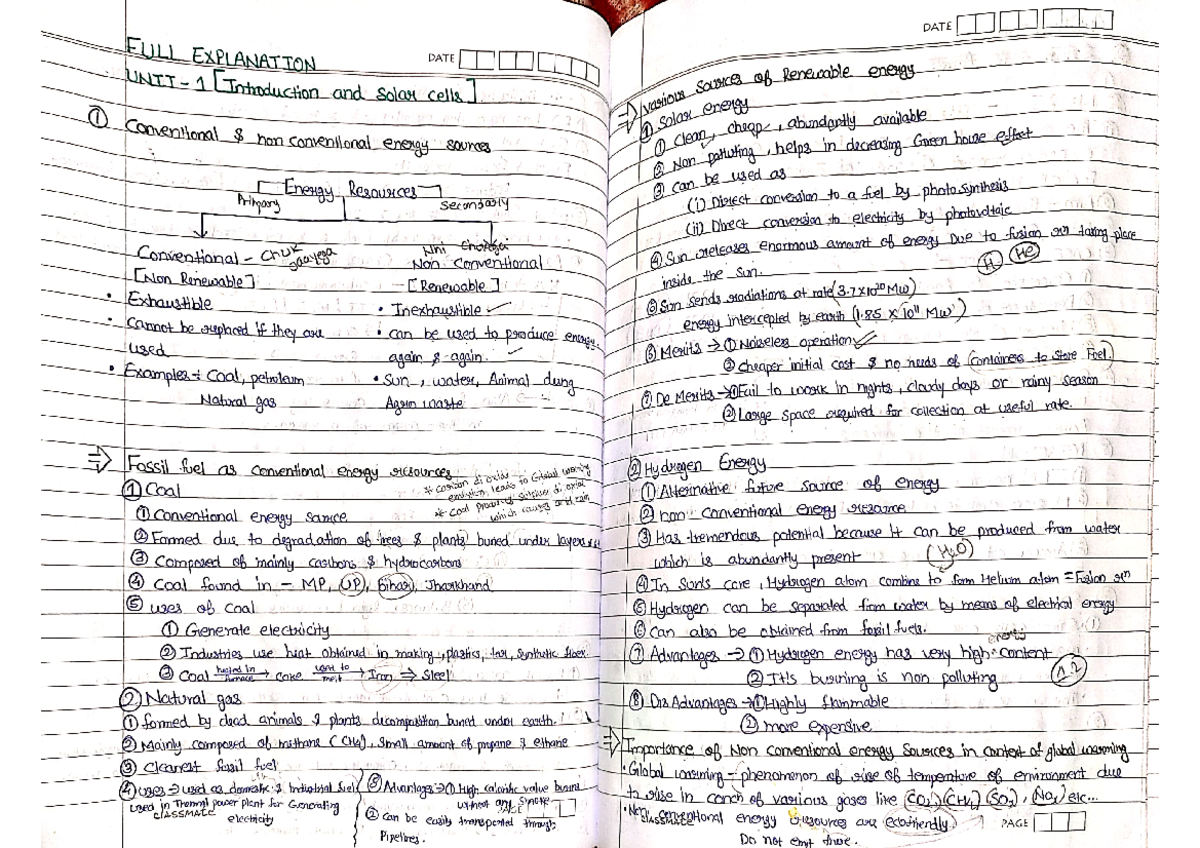 FULL EXPLANATION
DATE
UNIT - 1 [Introduction and solar cells]
① Conventional & non conventional energy sources
Energy Resources
Primary
Secondary
Conventional - Chuk jaayega
[Non Renewable]
Nhi
Non Conventional
[Renewable]
• Exhaustible
• Inexhaustible
• Cannot be replaced if they are
used
• can be used to produce energy
again & again.
• Examples ÷ Coal, petroleum
Natural gas
• Sun, water, Animal dung
Agro waste
⇒ Fossil fuel as conventional energy resources
* carbon di oxide
emission, leads to Global warming
* Coal produces sulphur di oxide
which causes acid rain
① Coal
① Conventional energy source
② Formed due to degradation of trees & plants buried under layers
③ Composed of mainly carbons & hydrocarbons
④ Coal found in - MP, UP, Bihar, Jharkhand
⑤ uses of coal
① Generate electricity
② Industries use heat obtained in making, plastics, tar, synthetic fiber
③ Coal heated in furnace → coke used to melt → Iron ⇒ Steel
② Natural gas
① formed by dead animals & plants decomposition buried under earth.
② Mainly composed of methane (CH4), small amount of propane & ethane
③ Cleanest fossil fuel
④ uses → used as domestic & Industrial fuel
used in Thermal power plant for Generating
electricity
CLASSMATE
⑤ Advantages → ① High calorific value burns
without any smoke
② Can be easily transported through
Pipelines.
PAGE
DATE
⇒ Various sources of Renewable energy
① Solar energy
① Clean, cheap, abundantly available
② Non polluting, helps in decreasing Green house effect
③ Can be used as
(i) Direct conversion to a fuel by photosynthesis
(ii) Direct conversion to electricity by photovoltaic
④ Sun releases enormous amount of energy Due to fusion rxn taking place
inside the Sun.
H He
⑤ Sun sends radiations at rate (3.7×10²⁰ MW)
energy intercepted by earth (1.85 × 10¹¹ MW)
⑥ Merits → ① Noiseless operation
② Cheaper initial cost & no needs of Containers to Store Fuel.
⑦ De Merits → ① Fail to work in nights, cloudy days or rainy season
② Large space required for collection at useful rate.
② Hydrogen Energy
① Alternative future source of energy
② non conventional energy resource
③ Has tremendous potential because it can be produced from water
which is abundantly present
(H2O)
④ In Sun's core, Hydrogen atom combine to form Helium atom = Fusion rxn
⑤ Hydrogen can be separated from water by means of electrical energy
⑥ Can also be obtained from fossil fuels.
energy
⑦ Advantages → ① Hydrogen energy has very high content
② Its burning is non polluting
⑧ Dis Advantages → ① Highly flammable
② more expensive
⇒ Importance of Non conventional energy Sources in context of global warming
• Global warming - phenomenon of rise of temperature of environment due
to rise in concn of various gases like (CO2) (CH4) (SO2), (NOx) etc...
• Non conventional energy resources are ecofriendly.
CLASSMATE
Do not emit these.
PAGE